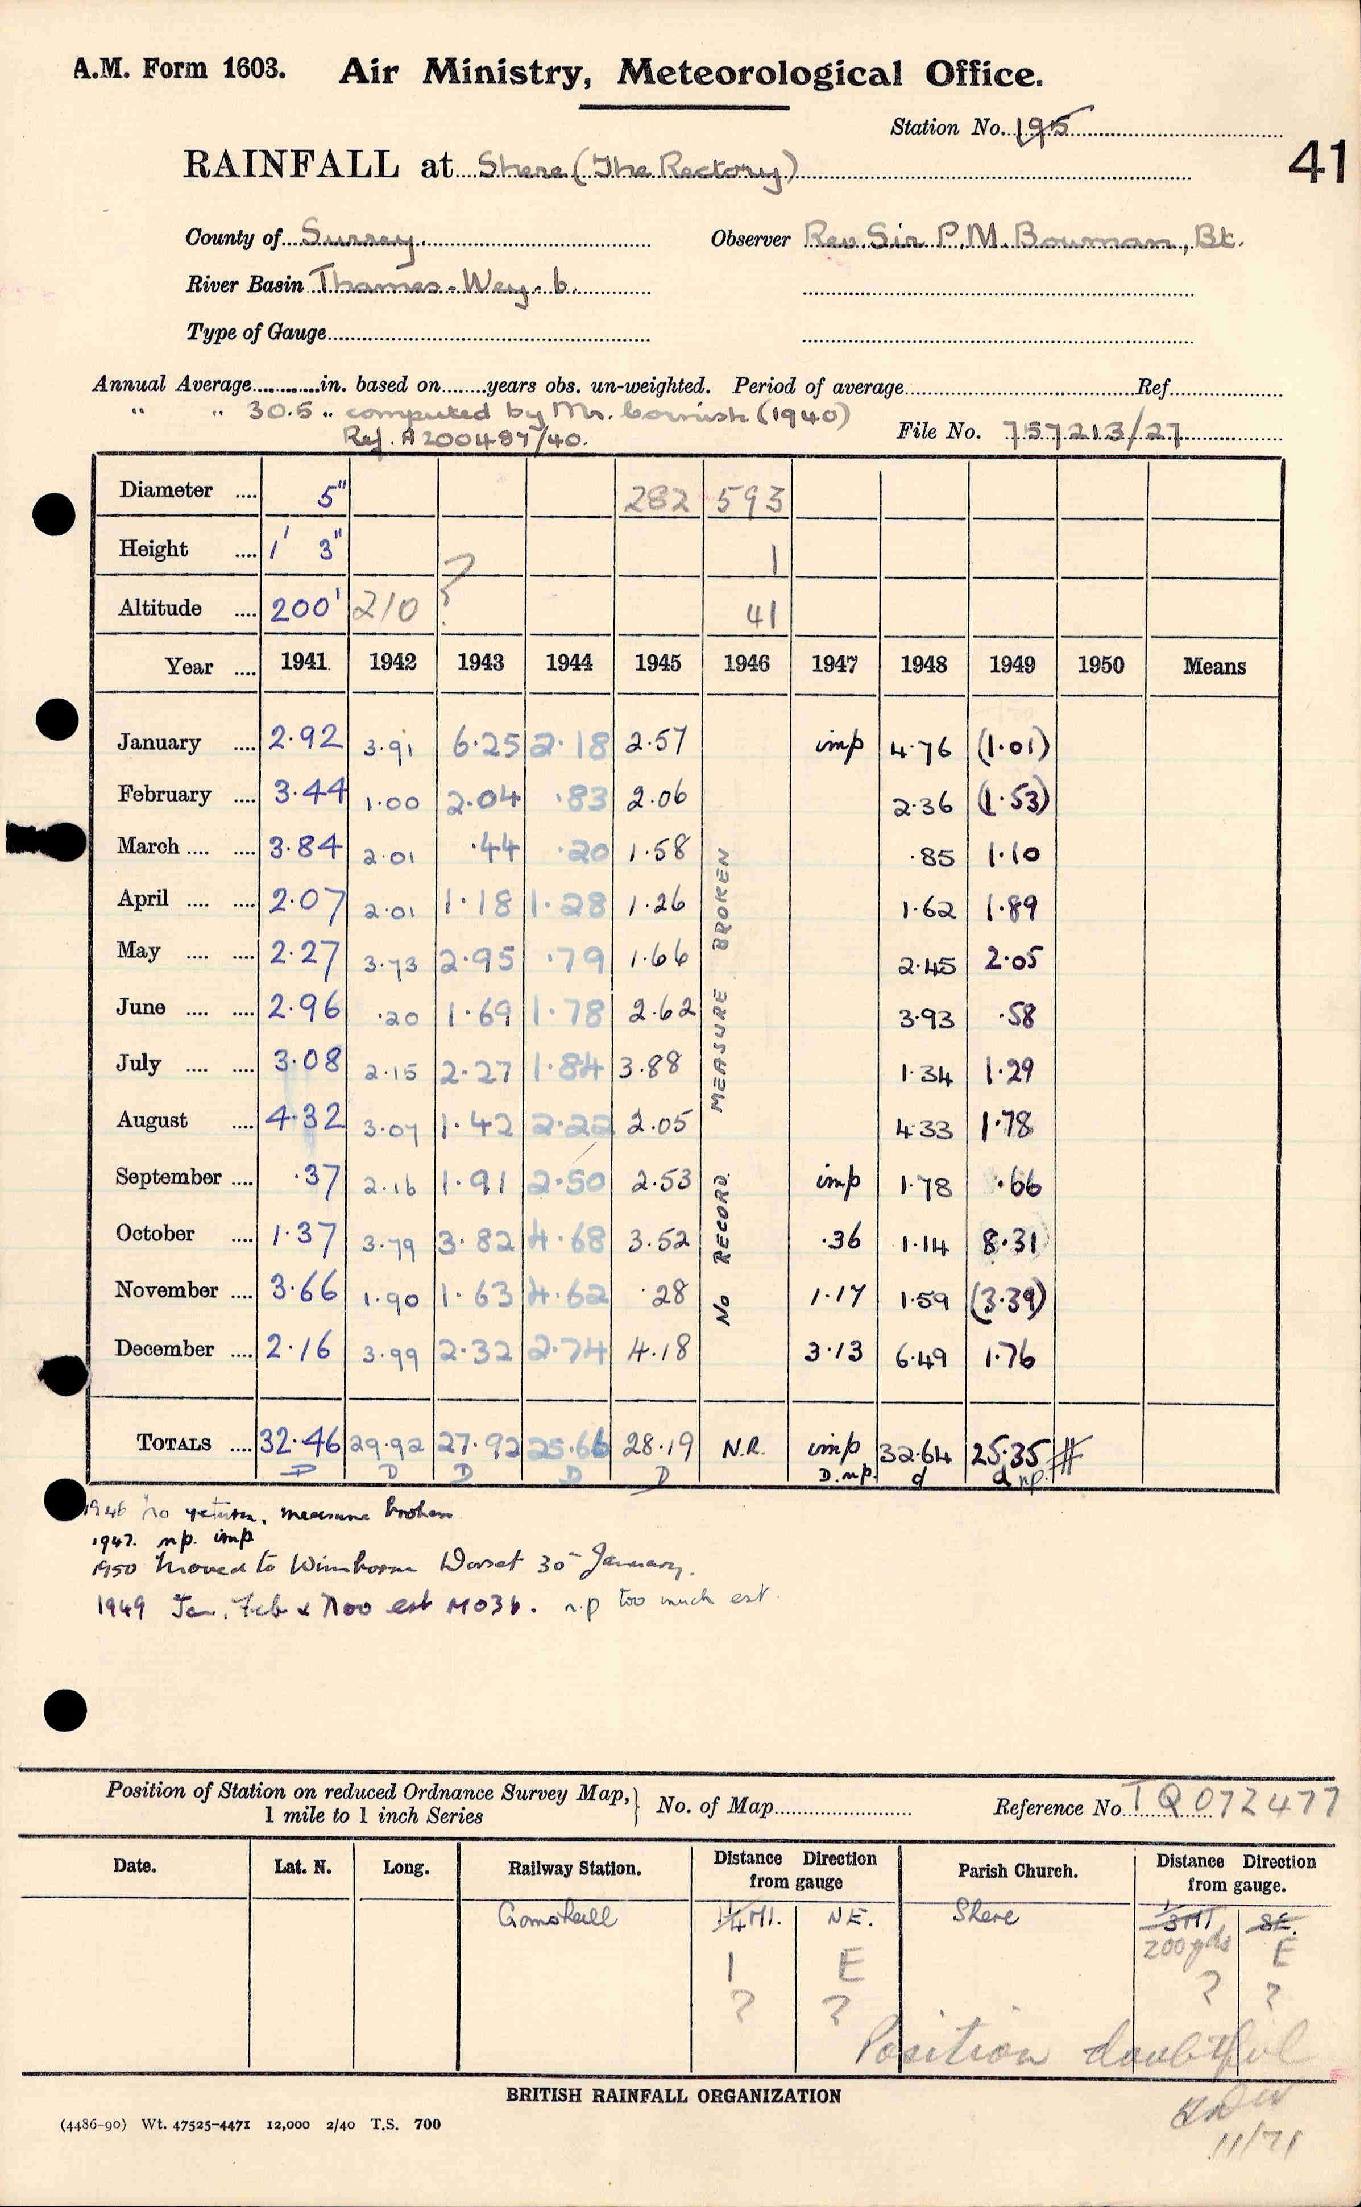 A.M. Form 1603. Air Ministry, Meteorological Office.
Station No. 195
41
RAINFALL at Shere (The Rectory)
County of Surrey Observer Rev. Sir P.M. Bowman, Bt.
River Basin Thames. Wey. b.
Type of Gauge
Annual Average in. based on years obs. un-weighted. Period of average Ref.
" " 30.5 " computed by Mr. Cornish (1940)
Ref. A200487/40. File No. 757213/27
Diameter .... 5" 282 593
Height .... 1' 3" 1
Altitude .... 200' 210 ? 41
Year .... 1941 1942 1943 1944 1945 1946 1947 1948 1949 1950 Means
January .... 2.92 3.91 6.25 2.18 2.57 imp 4.76 (1.01)
February .... 3.44 1.00 2.04 .83 2.06 2.36 (1.53)
March .... .... 3.84 2.01 .44 .20 1.58 .85 1.10
April .... .... 2.07 2.01 1.18 1.28 1.26 1.62 1.89
May .... .... 2.27 3.73 2.95 .79 1.66 2.45 2.05
June .... .... 2.96 .20 1.69 1.78 2.62 3.93 .58
July .... .... 3.08 2.15 2.27 1.84 3.88 1.34 1.29
August .... 4.32 3.07 1.42 2.22 2.05 4.33 1.78
September .... .37 2.16 1.91 2.50 2.53 imp 1.78 .66
October .... 1.37 3.79 3.82 4.68 3.52 .36 1.14 8.31
November .... 3.66 1.90 1.63 4.62 .28 1.17 1.59 (3.39)
December .... 2.16 3.99 2.32 2.74 4.18 3.13 6.49 1.76
No RECORD. MEASURE BROKEN
TOTALS .... 32.46 29.92 27.92 25.66 28.19 N.R. imp 32.64 25.35 #
D D D D D D.n.p. d d n.p.
1946 no return, measure broken
1947. n.p. imp
1950 Moved to Wimborne Dorset 30th January.
1949 Jan, Feb & Nov est MO3b. n.p too much est.
Position of Station on reduced Ordnance Survey Map,
1 mile to 1 inch Series
No. of Map Reference No. TQ 072477
Date. Lat. N. Long. Railway Station. Distance Direction from gauge Parish Church. Distance Direction from gauge.
Gomshall 1¼ MI. N.E. Shere 1/3 MI S.E.
1 E 200 yds E
? ? ? ?
Position doubtful
11/71
BRITISH RAINFALL ORGANIZATION
(4486-90) Wt. 47525-4471 12,000 2/40 T.S. 700